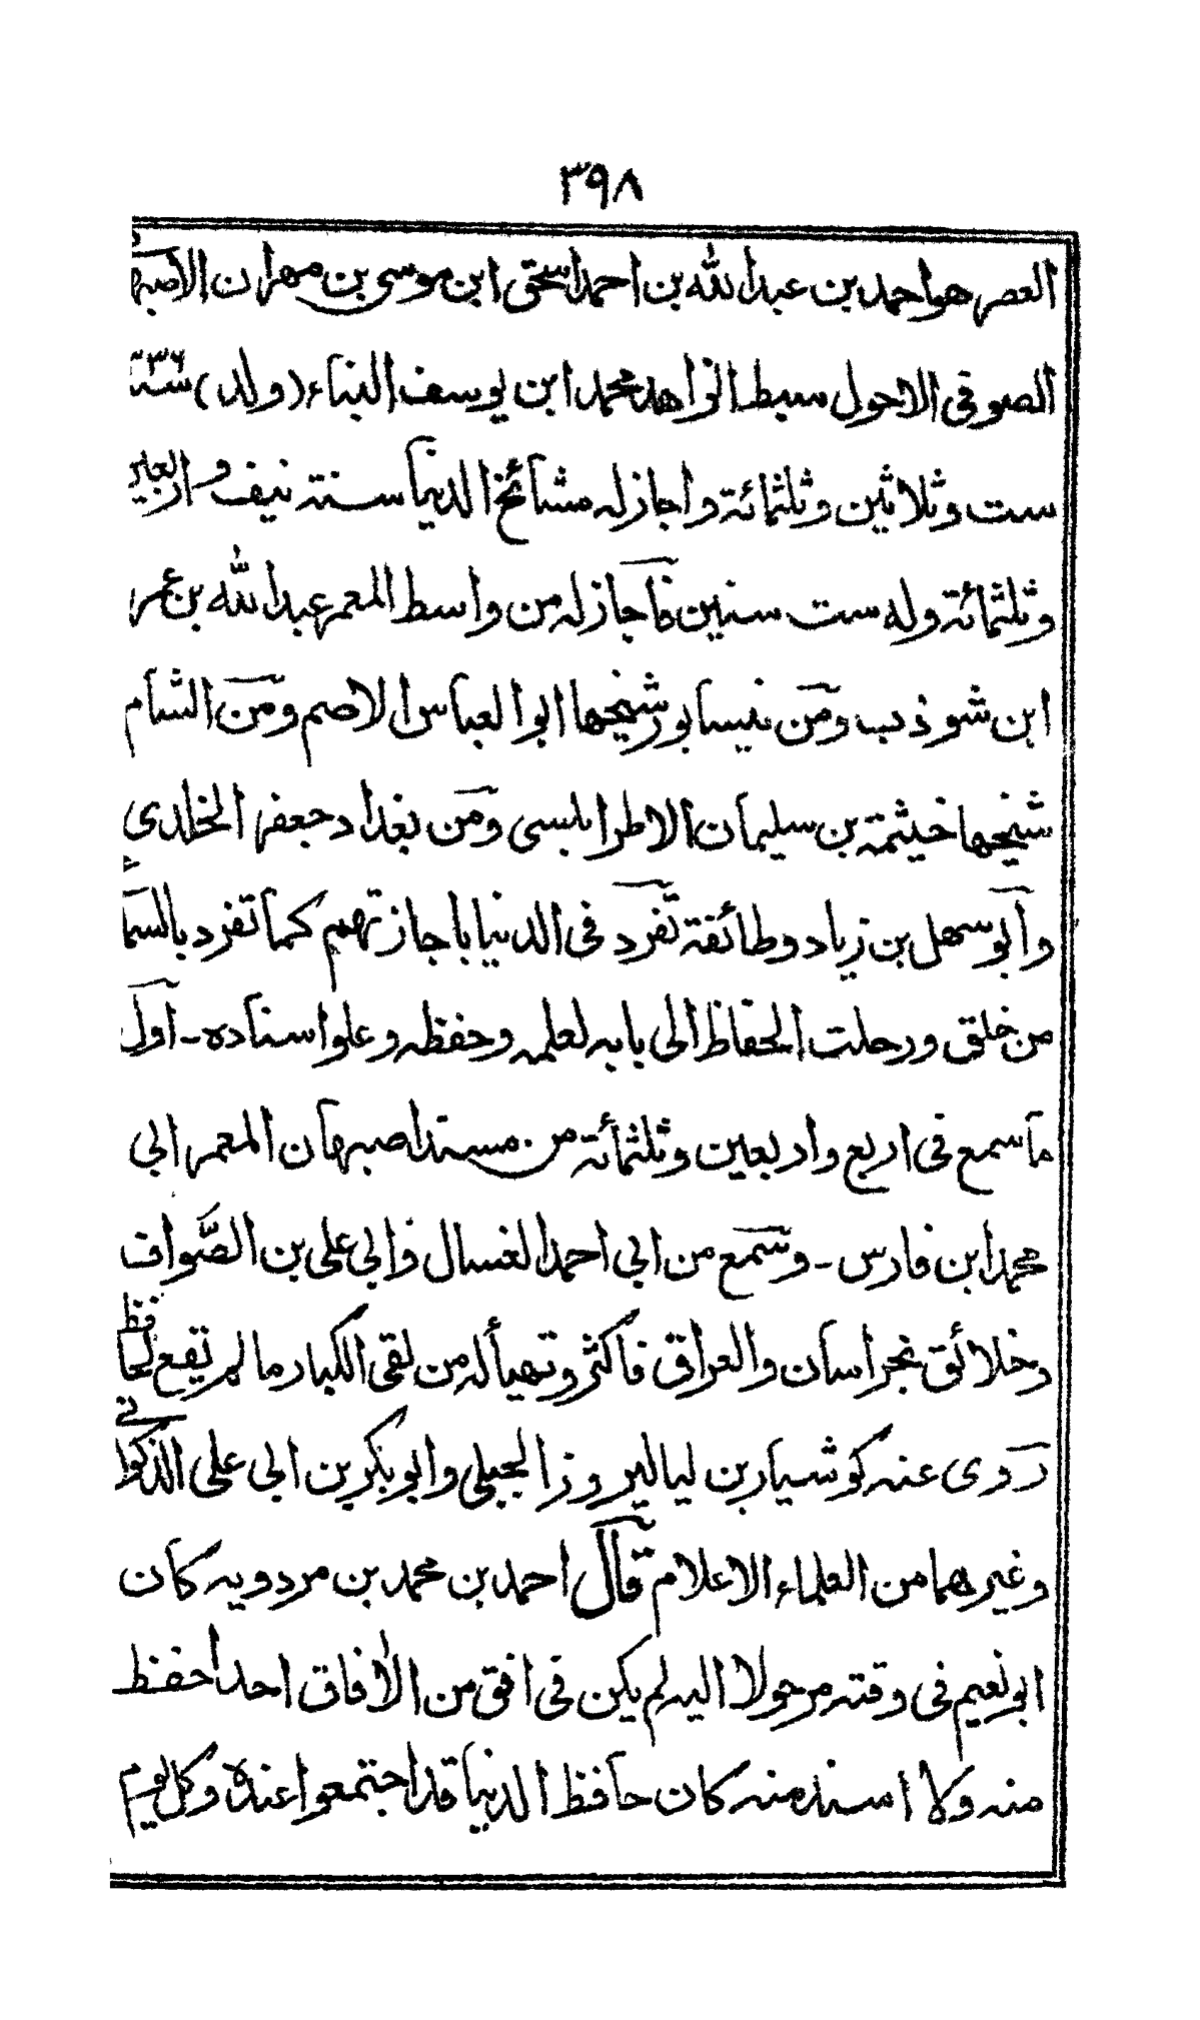 ٣٩٨
العصر هو احمد بن عبد الله بن احمد اسحق ابن موسى بن مهران الاصبها
الصوفى الاحول سبط الزاهد محمد ابن يوسف البناء (ولد) سنة ٣٣٦
ست وثلاثين وثلثمائة واجاز له مشائخ الدنيا سنة نيف واربعين
وثلثمائة وله ست سنين فاجاز له من واسط المعمر عبد الله بن عمر
ابن شوذب ومن نيسابور شيخها ابو العباس الاصم ومن الشام
شيخها خيثمة بن سليمان الاطرابلسى ومن بغداد جعفر الخلدى
وابو سهل بن زياد وطائفة تفرد فى الدنيا باجازتهم كما تفرد بالسما
من خلق ورحلت الحفاظ الى بابه لعلمه وحفظه وعلو اسناده - اول
ما سمع فى اربع واربعين وثلثمائة من مسند اصبهان المعمر ابي
محمد ابن فارس - وسمع من ابي احمد الغسال وابي على بن الصَّواف
وخلائق بخراسان والعراق فاكثر وتهيأ له من لقى الكبار ما لم يقع لحافظ
روى عنه كوشيار بن لياليروز الجيلى وابو بكر بن ابى على الذكوانى
وغيرهما من العلماء الاعلام قال احمد بن محمد بن مردويه كان
ابو نعيم فى وقته مرحولا اليه لم يكن فى افق من الأفاق احد احفظ
منه ولا اسند منه كان حافظ الدنيا قد اجتمعوا عنده وكل يوم